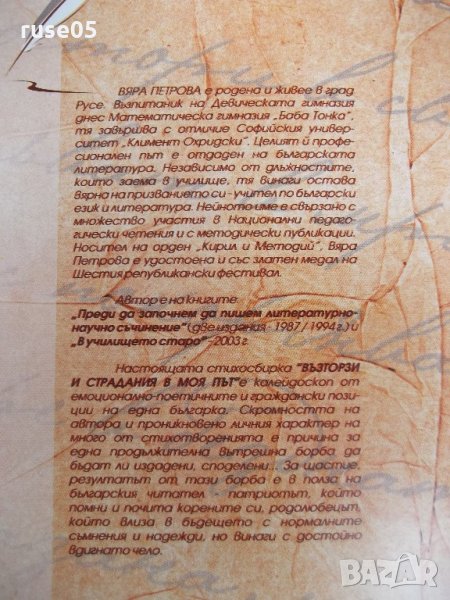 ruse05
ВЯРА ПЕТРОВА е родена и живее в град
Русе. Възпитаник на Девическата гимназия
днес Математическа гимназия „Баба Тонка",
тя завършва с отличие Софийския универ-
ситет „Климент Охридски". Целият ѝ профе-
сионален път е отдаден на българската
литература. Независимо от длъжностите,
които заема в училище, тя винаги остава
вярна на призванието си - учител по български
език и литература. Нейното име е свързано с
множество участия в Национални педаго-
гически четения и с методически публикации.
Носител на орден „Кирил и Методий", Вяра
Петрова е удостоена и със златен медал на
Шестия републикански фестивал.
Автор е на книгите:
„Преди да започнем да пишем литературно-
научно съчинение" (две издания - 1987 / 1994 г.) и
„В училището старо" - 2003 г.
Настоящата стихосбирка "ВЪЗТОРЗИ
И СТРАДАНИЯ В МОЯ ПЪТ" е калейдоскоп от
емоционално-поетичните и граждански пози-
ции на една българка. Скромността на
автора и проникновено личния характер на
много от стихотворенията е причина за
една продължителна вътрешна борба да
бъдат ли издадени, споделени... За щастие,
резултатът от тази борба е в полза на
българския читател - патриотът, който
помни и почита корените си, родолюбецът,
който влиза в бъдещето с нормалните
съмнения и надежди, но винаги с достойно
вдигнато чело.
BAZAR